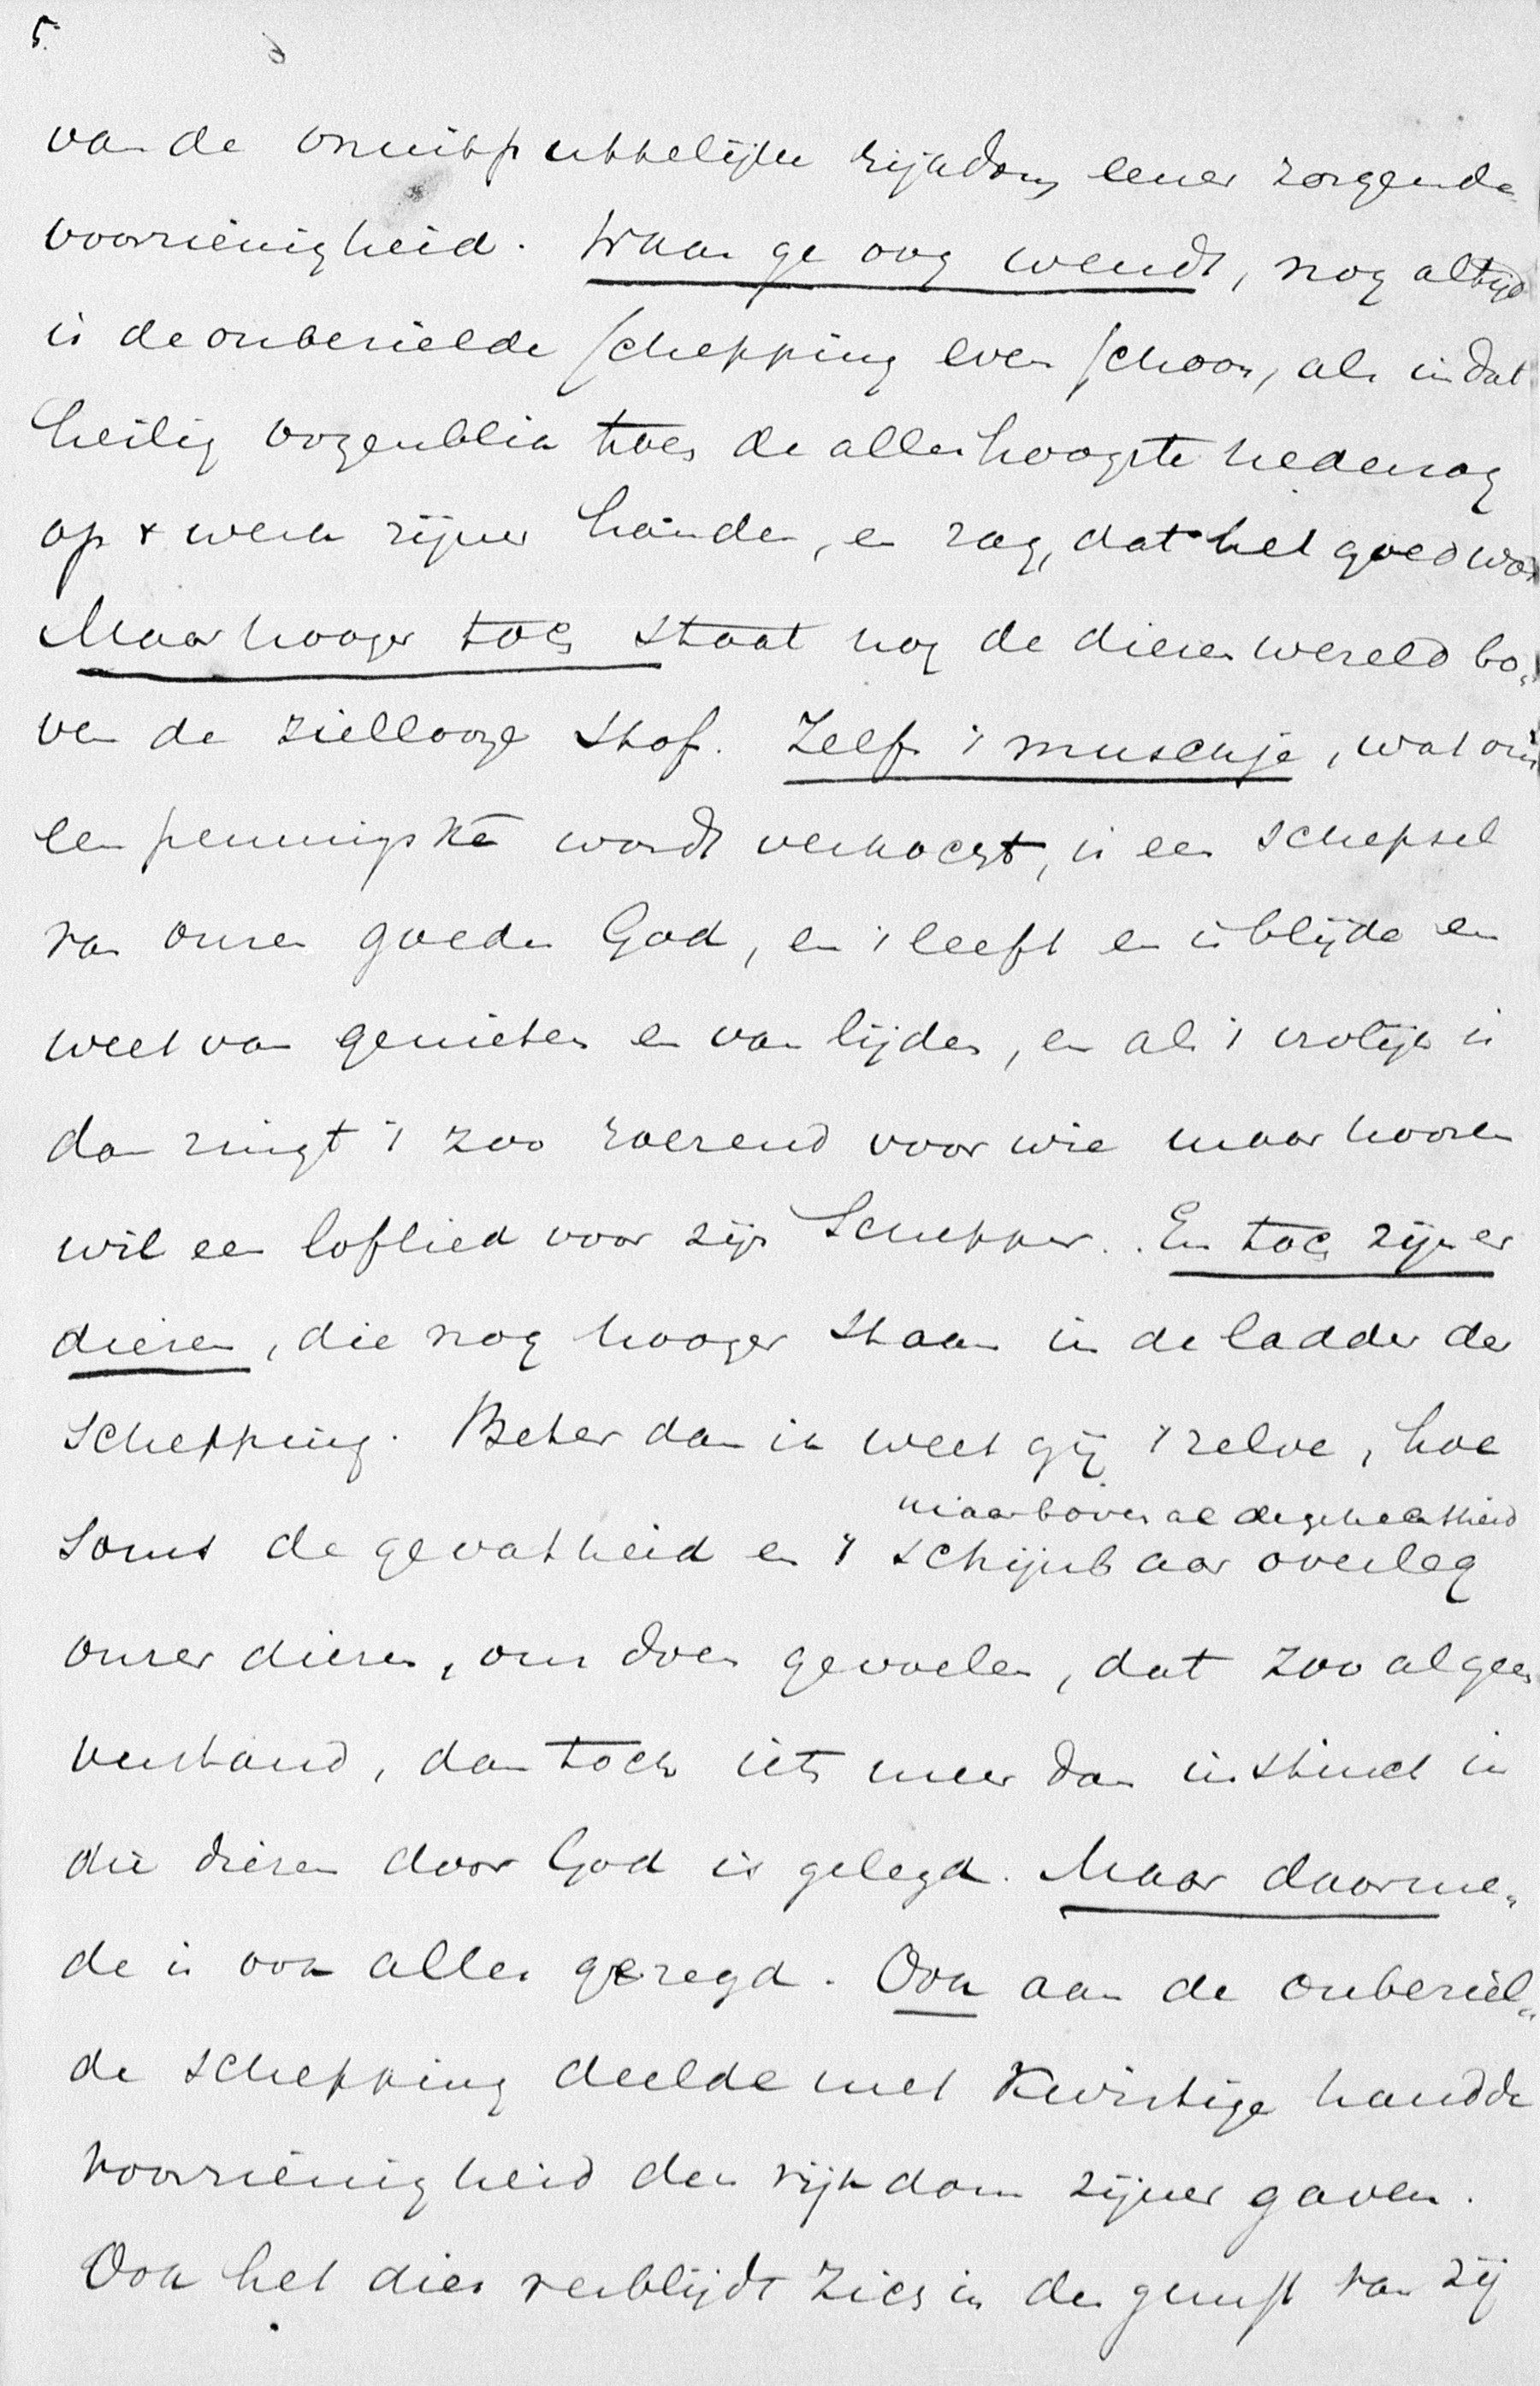 5.
van de onuitputtelijke rijkdom eener zorgende
voorzienigheid. Waar ge oog wendt, nog altijd
is de onbezielde schepping even schoon, als in dat
heilig oogenblik toen de allerhoogste nederzag
op 't werk zijner handen, en zag, dat het goed was
Maar hooger toch staat nog de dierenwereld bo„
ven de ziellooze stof. Zelfs 't muschje, wat om
een penningske wordt verkocht, is een schepsel
van onzen goeden God, en 't leeft en is blijde en
weet van genieten en van lijden, en als 't vrolijk is
dan zingt 't zoo roerend voor wie maar hooren
wil een loflied voor zijn Schepper. En toch zijn er
dieren, die nog hooger staan in de ladder der
schepping. Beter dan ik weet gij 't zelve, hoe
maar boven al de gehechtheid
soms de gevatheid en 't schijnbaar overleg
onzer dieren, ons doen gevoelen, dat zoo al geen
verstand, dan toch iets meer dan instinct in
die dieren door God is gelegd. Maar daarme„
de is ook alles gezegd. Ook aan de onbeziel„
de schepping deelde met kwistige hand de
voorzienigheid den rijkdom zijner gaven.
Ook het dier verblijdt zich in de gunst van zij